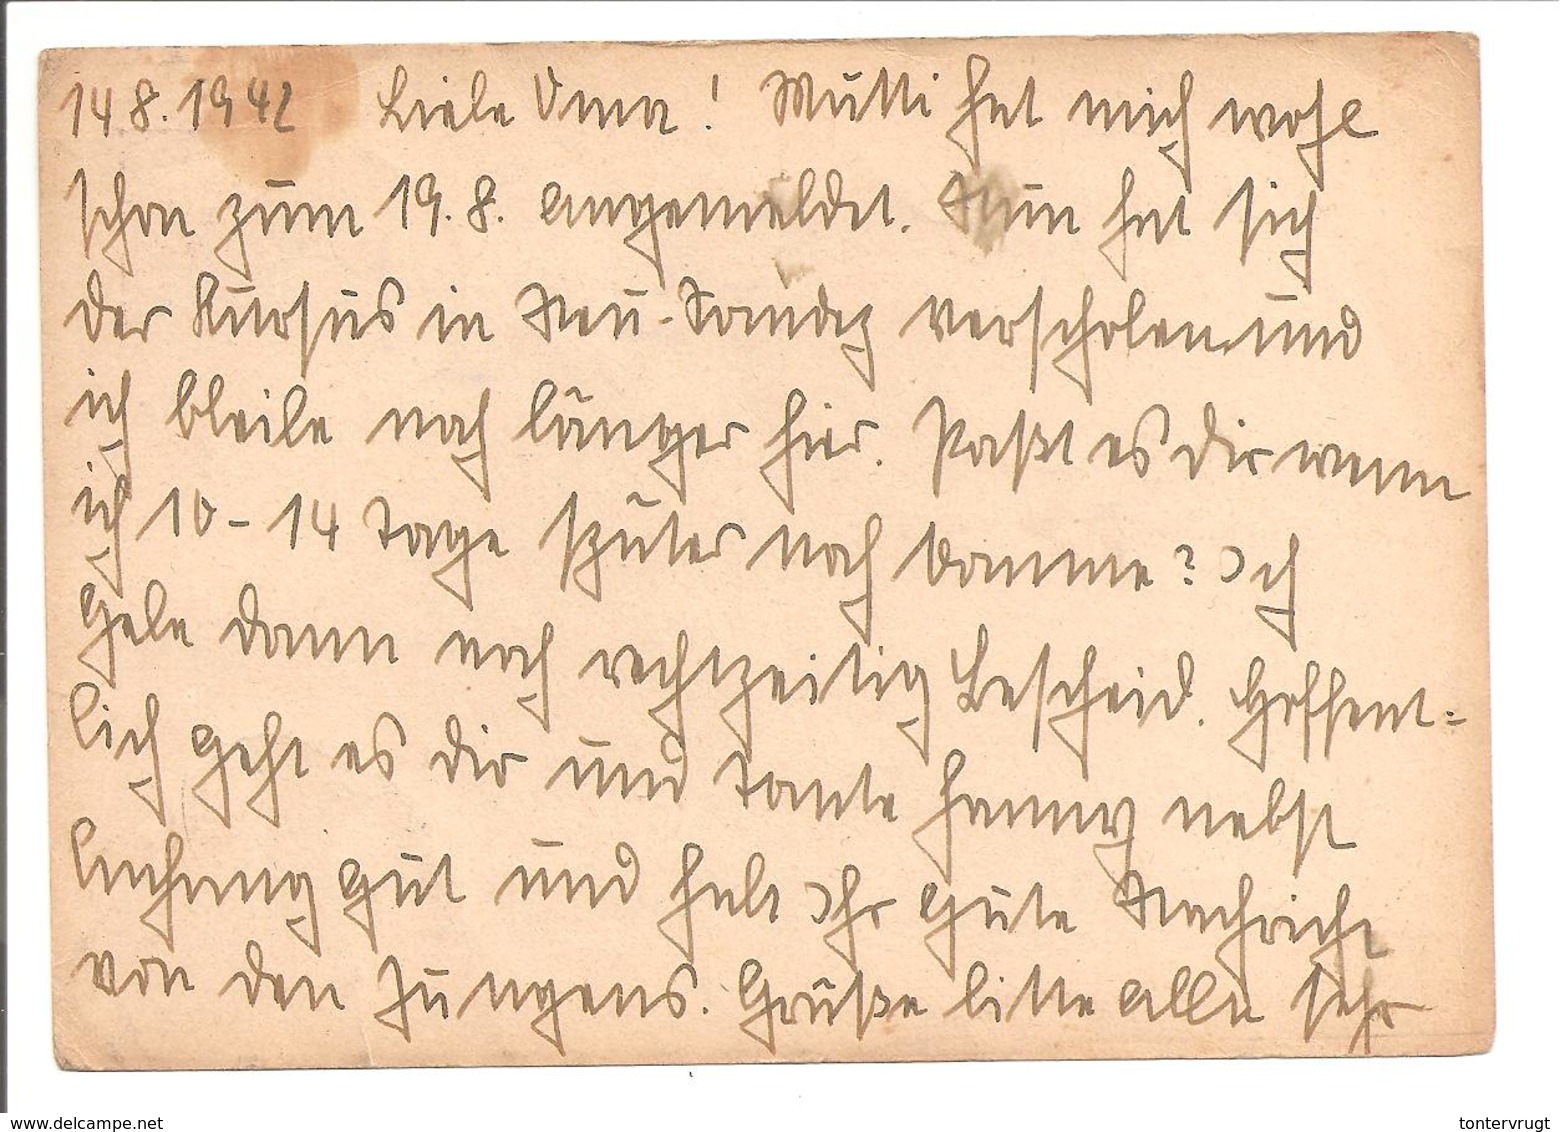 14 8. 1942 Liebe Oma! Mutti hat mich wohl
schon zum 19. 8. angemeldet. Nun hat sich
der Kursus in Neu-Sandez verschoben und
ich bleibe noch länger hier. Paßt es dir wenn
ich 10-14 Tage später noch komme? Ich
gebe dann noch rechtzeitig Bescheid. Hoffent=
lich geht es dir und Tante Hanny nebst
Anhang gut und habt Ihr gute Nachricht
von den Jungens. Grüße bitte alle sehr
www.delcampe.net
tontervrugt